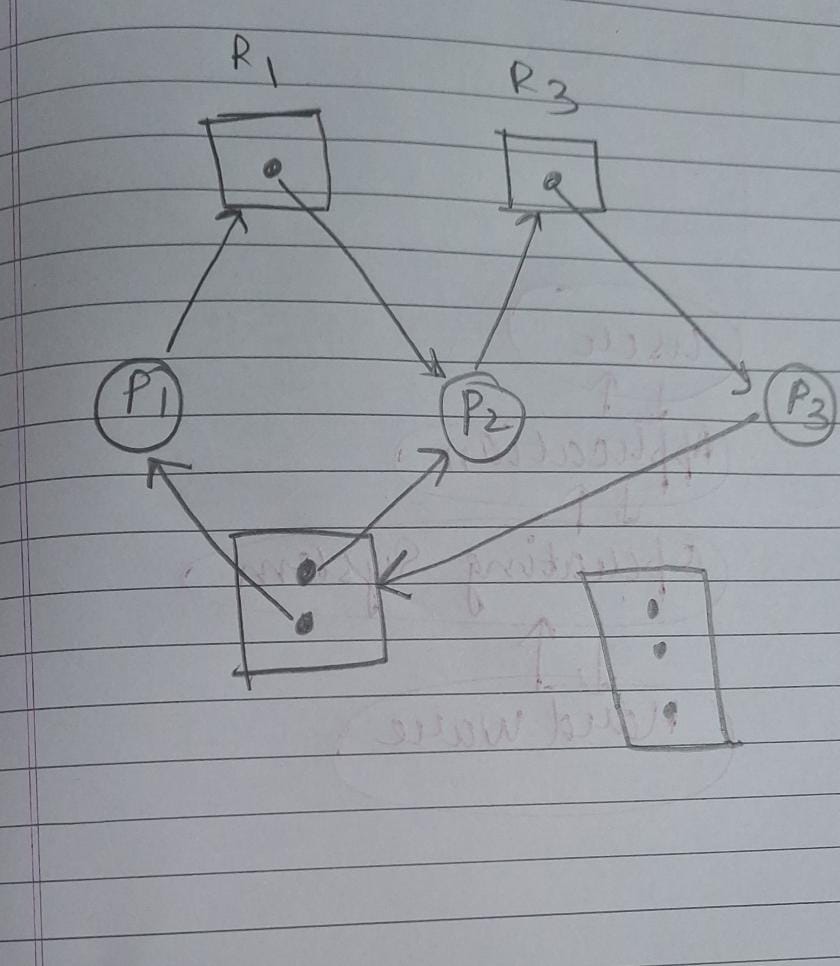 R1 R3
P1 P2 P3